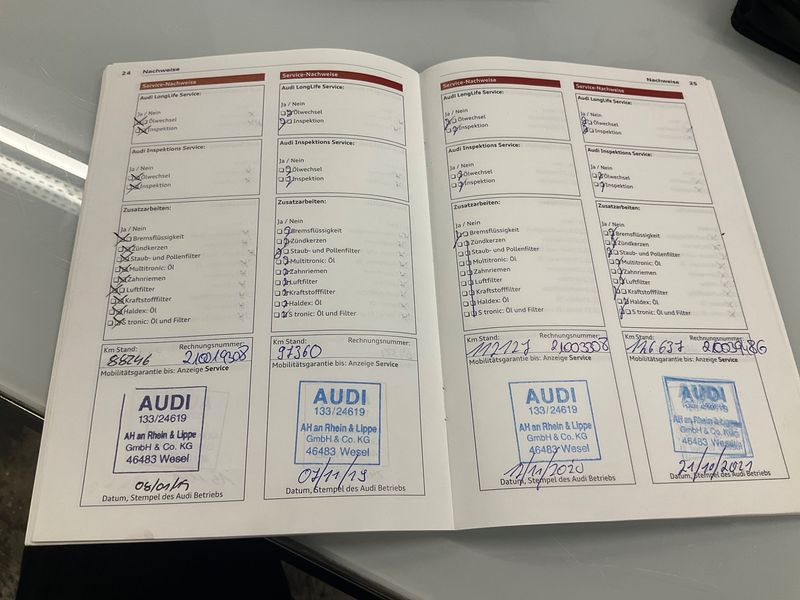 24 Nachweise
Service-Nachweise
Audi LongLife Service:
Ja / Nein
Ölwechsel
Inspektion
Audi Inspektions Service:
Ja / Nein
Ölwechsel
Inspektion
Zusatzarbeiten:
Ja / Nein
Bremsflüssigkeit
Zündkerzen
Staub- und Pollenfilter
Multitronic: Öl
Zahnriemen
Luftfilter
Kraftstofffilter
Haldex: Öl
S tronic: Öl und Filter
Km Stand: Rechnungsnummer:
Mobilitätsgarantie bis: Anzeige Service
AUDI
133/24619
AH an Rhein & Lippe
GmbH & Co. KG
46483 Wesel
08/01/19
Datum, Stempel des Audi Betriebs
Service-Nachweise
Audi LongLife Service:
Ja / Nein
Ölwechsel
Inspektion
Audi Inspektions Service:
Ja / Nein
Ölwechsel
Inspektion
Zusatzarbeiten:
Ja / Nein
Bremsflüssigkeit
Zündkerzen
Staub- und Pollenfilter
Multitronic: Öl
Zahnriemen
Luftfilter
Kraftstofffilter
Haldex: Öl
S tronic: Öl und Filter
Km Stand: Rechnungsnummer:
97360
Mobilitätsgarantie bis: Anzeige Service
AUDI
133/24619
AH an Rhein & Lippe
GmbH & Co. KG
46483 Wesel
07/11/19
Datum, Stempel des Audi Betriebs
Nachweise 25
Service-Nachweise
Audi LongLife Service:
Ja / Nein
Ölwechsel
Inspektion
Audi Inspektions Service:
Ja / Nein
Ölwechsel
Inspektion
Zusatzarbeiten:
Ja / Nein
Bremsflüssigkeit
Zündkerzen
Staub- und Pollenfilter
Multitronic: Öl
Zahnriemen
Luftfilter
Kraftstofffilter
Haldex: Öl
S tronic: Öl und Filter
Km Stand: Rechnungsnummer:
112127
Mobilitätsgarantie bis: Anzeige Service
AUDI
133/24619
AH an Rhein & Lippe
GmbH & Co. KG
46483 Wesel
Datum, Stempel des Audi Betriebs
Service-Nachweise
Audi LongLife Service:
Ja / Nein
Ölwechsel
Inspektion
Audi Inspektions Service:
Ja / Nein
Ölwechsel
Inspektion
Zusatzarbeiten:
Ja / Nein
Bremsflüssigkeit
Zündkerzen
Staub- und Pollenfilter
Multitronic: Öl
Zahnriemen
Luftfilter
Kraftstofffilter
Haldex: Öl
S tronic: Öl und Filter
Km Stand: Rechnungsnummer:
126637
Mobilitätsgarantie bis: Anzeige Service
AUDI
133/24619
AH an Rhein & Lippe
GmbH & Co. KG
46483 Wesel
21/10/2021
Datum, Stempel des Audi Betriebs